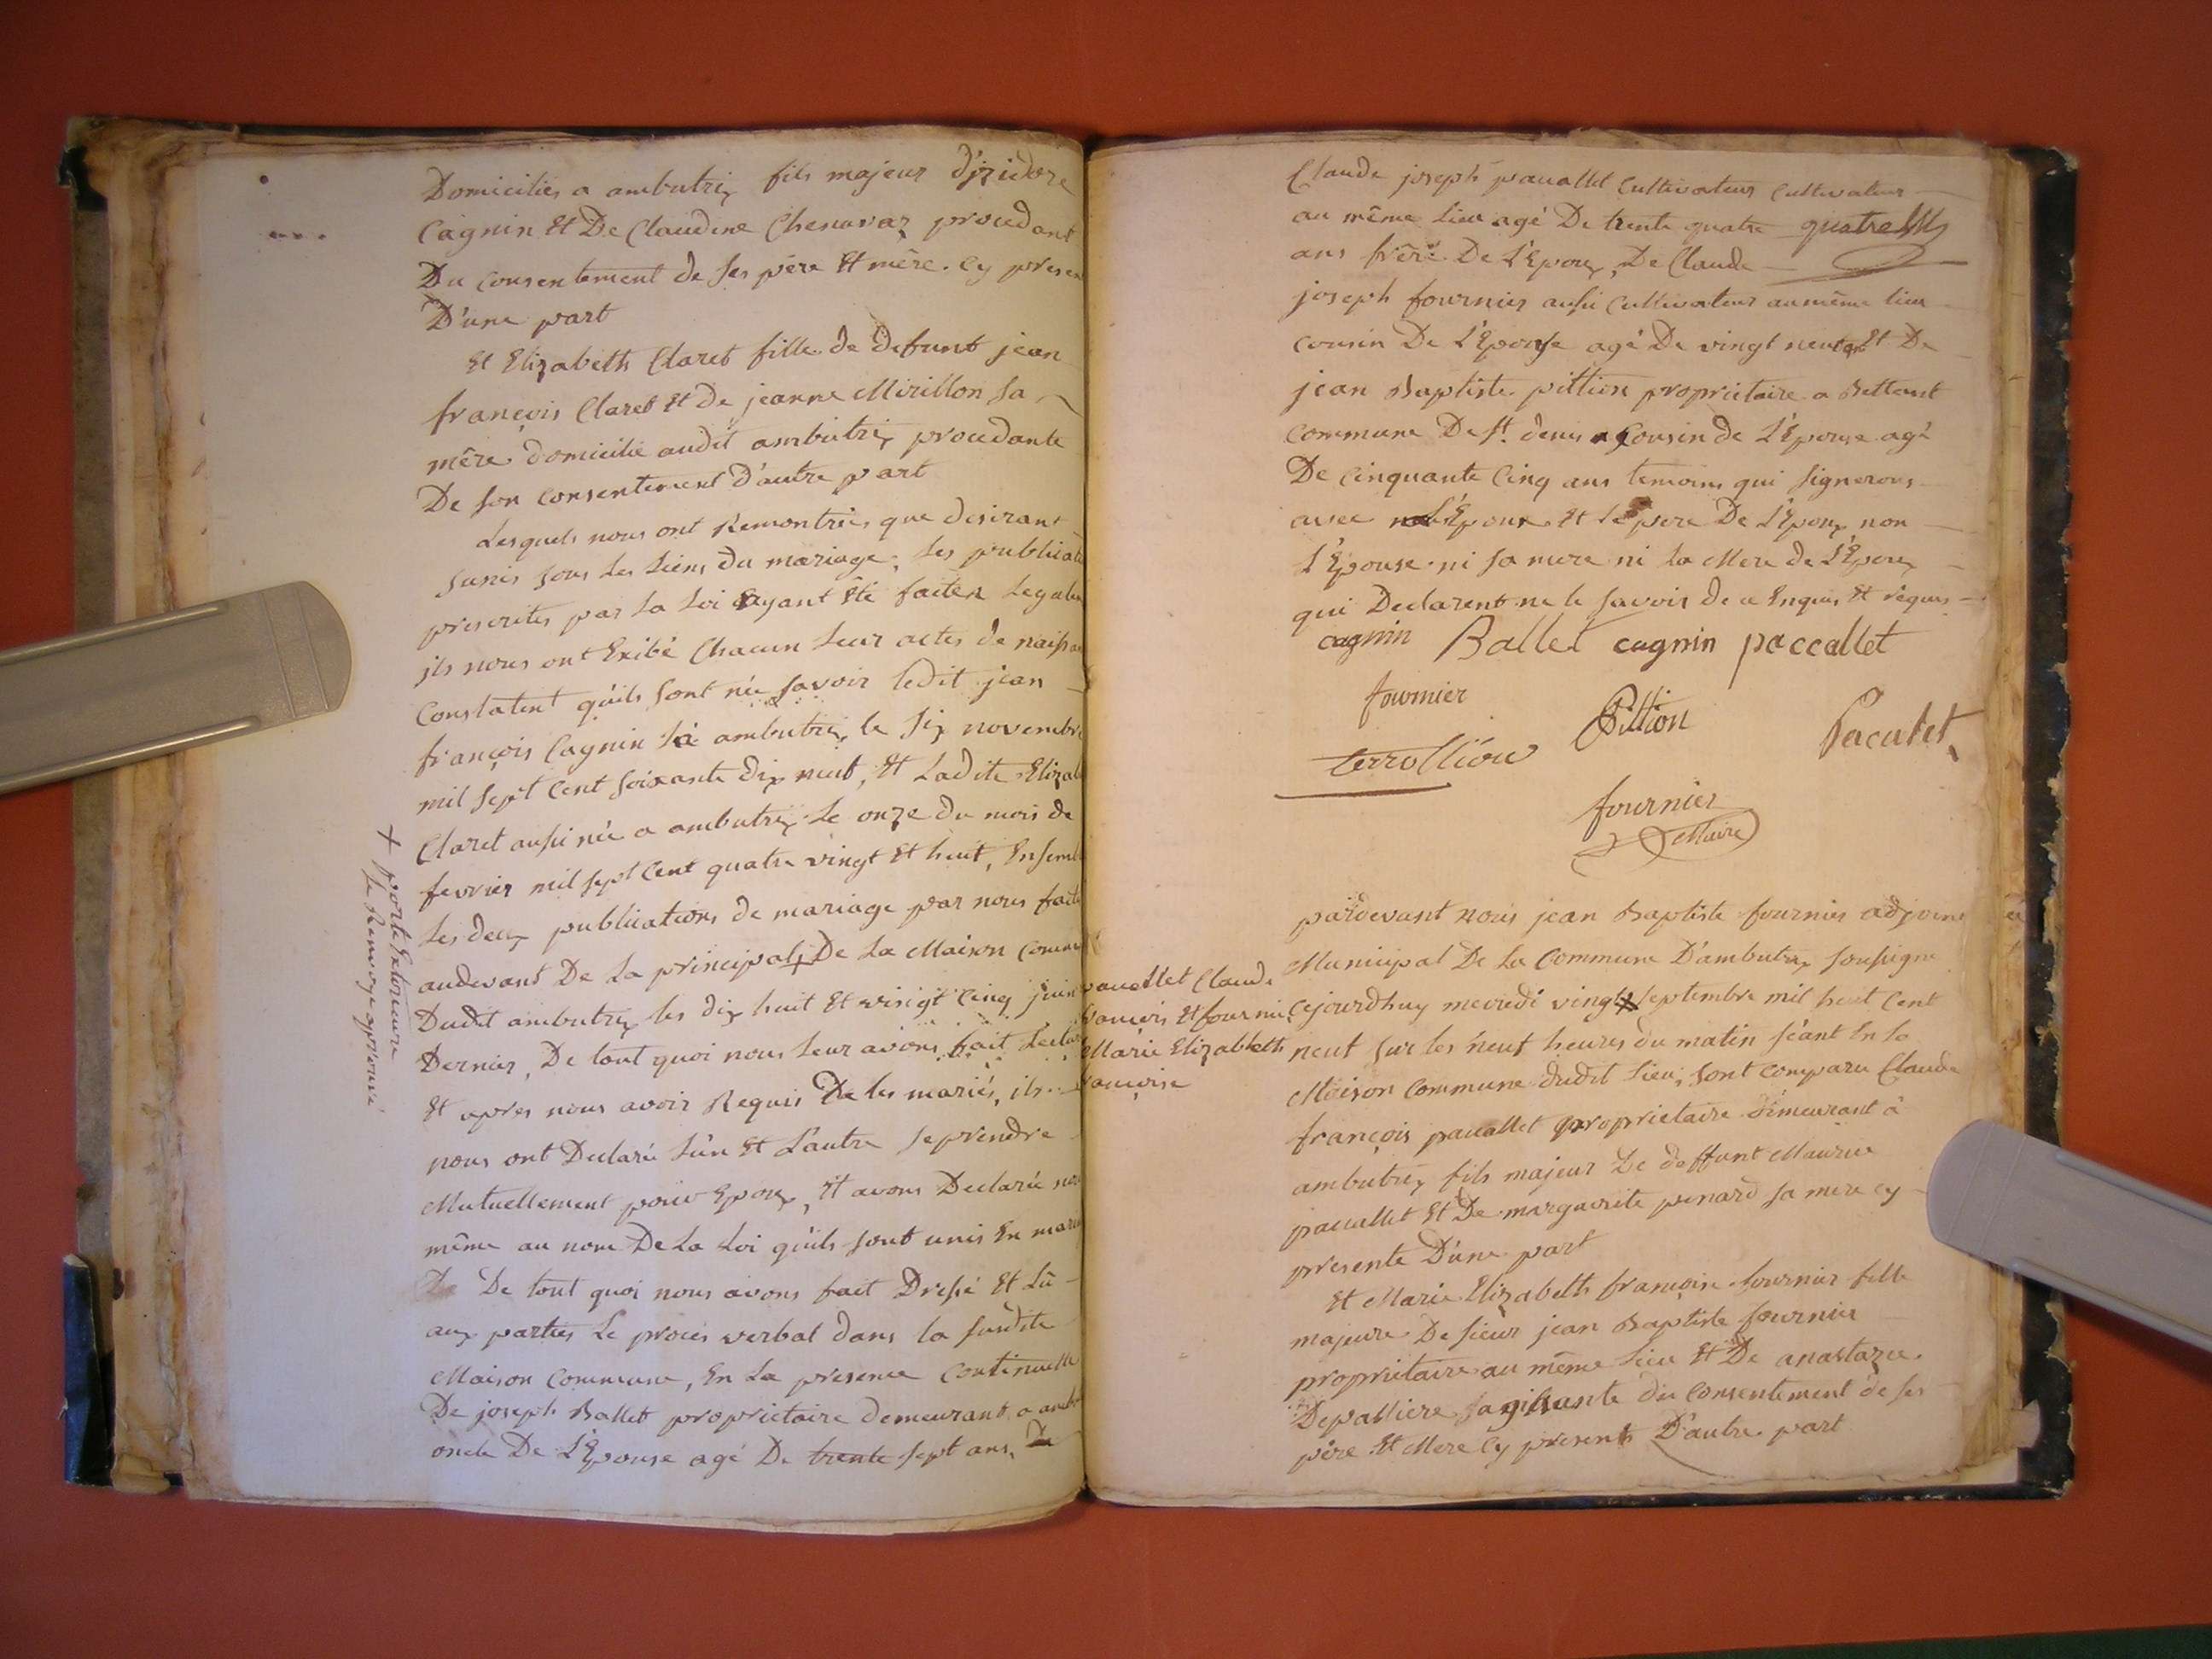 Domiciliés a ambutrix fils majeur d'jzidore
Cagnin Et De Claudine Chenavaz procedant
Du consentement de ses père Et mère. Cy presen
D'une part
Et Elizabeth Claret fille de defunt jean
françois Claret Et de jeanne Mirillon sa
mère domicilié audit ambutrix procedante
De son consentement d'autre part
Lesquels nous ont Remontrés que desirant
s'unir sous les liens du mariage, les publicat
prescrites par la Loi ayant été faites Legalem
jls nous ont Exibé Chacun leur actes de naissan
Constatent qu'ils sont née savoir ledit jean
françois Cagnin à ambutrix le six novembre
mil sept Cent soixante dix neuf, Et Ladite Elizab
Claret aussi née a ambutrix Le onze du mois de
fevrier mil sept Cent quatre vingt Et huit, Ensemb
Les deux publications de mariage par nous faite
audevant De La principale + De La Maison Commu
Dudit ambutrix les dix huit Et vingt Cinq juin
Dernier, De tout quoi nous leur avons fait Lectur
Et apres nous avoir Requis De les mariés, ils
nous ont Declaré l'un Et L'autre se prendre
Mutuellement pour Epoux, Et avons Declarée nou
même au nom De La Loi qu'ils sont unis En mari
De tout quoi nous avons fait Dressé Et Lû
aux parties Le procès verbal dans la susdite
Maison Commune, En La presence Continuelle
De joseph Ballet proprietaire demeurant a amb
oncle De L'Epouse agé De trente sept ans, De
+ porte Exterieure
Le Renvoye aprouvé
Claude joseph paccallet Cultivateur Cultivateur
au même lieu agé De trente quatre quatre
ans frère De L'Epoux, De Claude
joseph fournier aussi Cultivateur au même lieu
cousin De L'Epouse agé De vingt neuf ans Et De
jean Baptiste pittion proprietaire a Bettant
Commune De St. denis Cousin de L'Epouse agé
De Cinquante Cinq ans temoins qui signerons
avec L'Epoux Et Le père De L'Epoux non
L'Epouse ni sa mere ni La Mere de L'Epoux
qui Declarent ne le savoir de ce Enquis Et réquis
cagnin Ballet cagnin paccallet
fournier Pittion Pacalet
terrollion
fournier
Maire
paccallet Claude
françois Et fournier
Marie Elizabbeth
françoise
pardevant nous jean Baptiste fournier adjoint
Municipal De La Commune D'ambutrix soussigné
Cejourdhuy mecredi vingt septembre mil huit Cent
neuf sur les neuf heures du matin séant En la
Maison Commune dudit lieu, sont comparu Claude
françois paccallet proprietaire demeurant à
ambutrix fils majeur De deffunt Maurice
paccallet Et De marguerite penard sa mere cy
presente D'une part
Et Marie Elizabeth françoise fournier fille
majeure De sieur jean Baptiste fournier
proprietaire au même Lieu Et De anastazie
Depalliere sagissante du Consentement de ses
père Et Mere Cy presents D'autre part